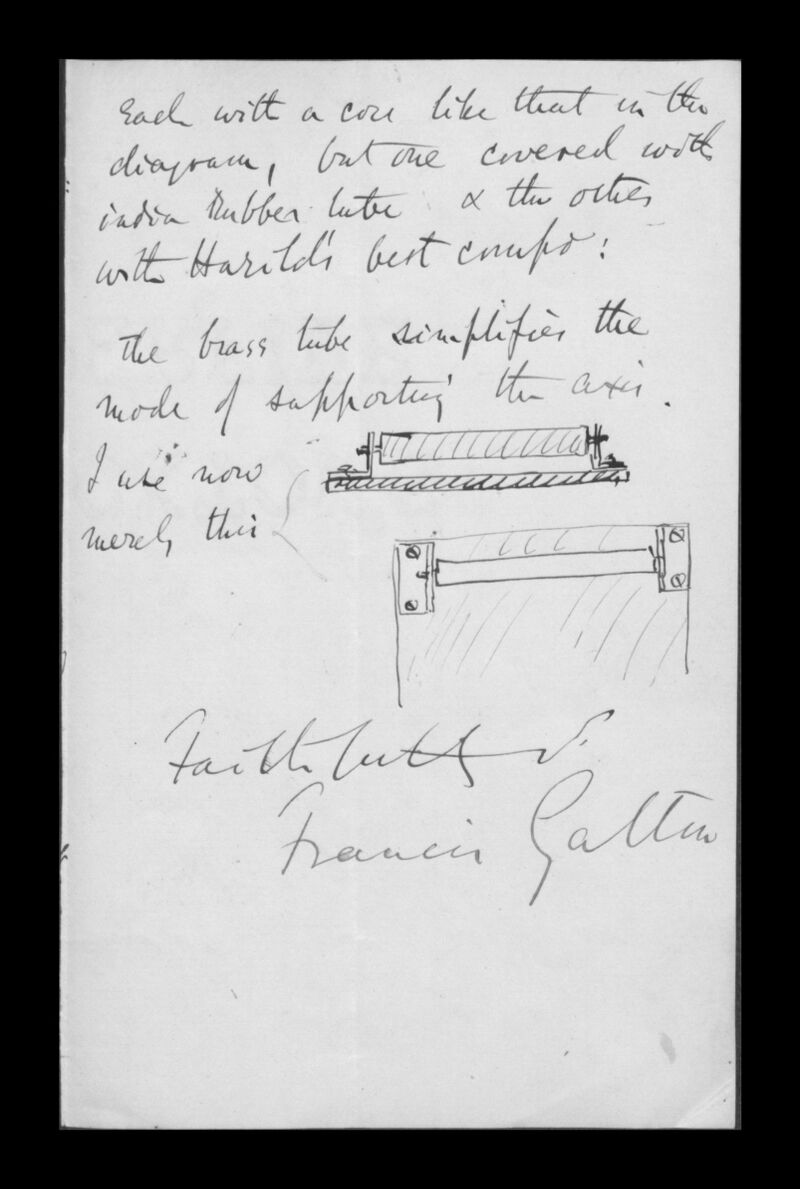 Each with a core like that in the
diagram, but one covered with
india Rubber tube & the other
with Harild's best compo :
The brass tube simplifies the
mode of supporting the axis.
I use now
merely this
Faithfully yrs
Francis Galton